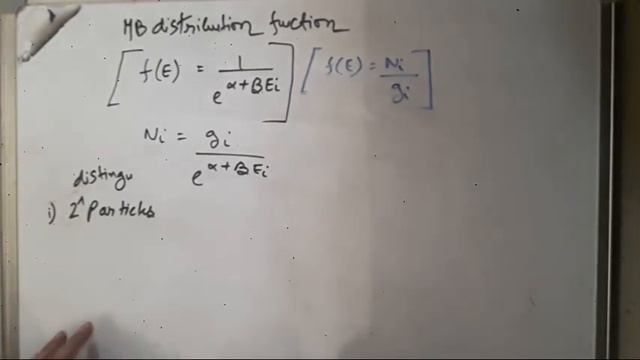 MB distribution fuction
[ f(E) = 1 / e^(α+βEi) ] [ f(E) = Ni / gi ]
Ni = gi / e^(α+βEi)
distingu
i) 2^Particles